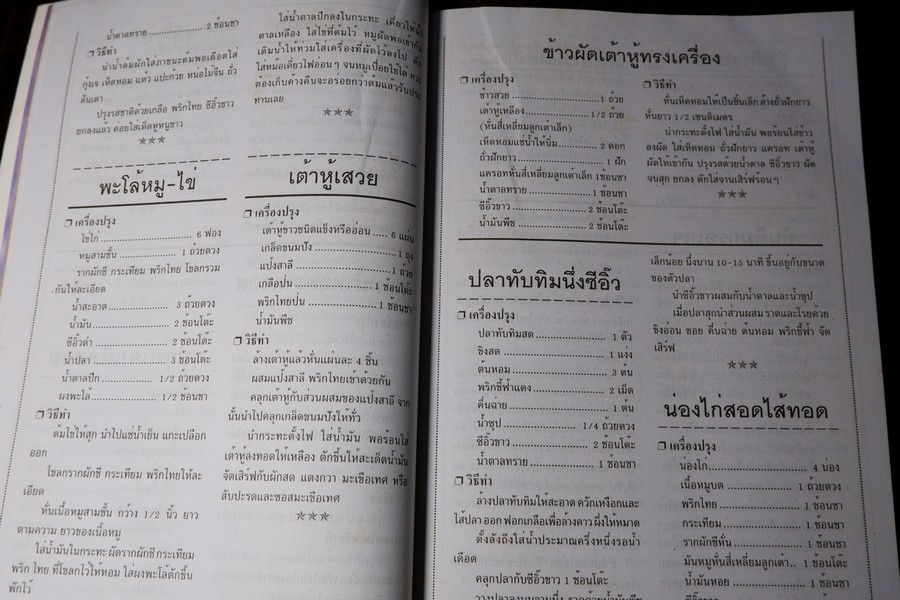 น้ำตาลทราย ........................ 2 ช้อนชา
❒ วิธีทำ
นำน้ำต้มผักใส่ภาชนะต้มพอเดือดใส่
กุ้งเจ เห็ดหอม แห้ว แปะก้วย หน่อไม้จีน ถั่ว
ลันเตา
ปรุงรสชาติด้วยเกลือ พริกไทย ซีอิ๊วขาว
ยกลงแล้ว ค่อยใส่เห็ดหูหนูขาว
✯✯✯
พะโล้หมู-ไข่
❒ เครื่องปรุง
ไข่ไก่ ........................ 6 ฟอง
หมูสามชั้น ........................ 1 ถ้วยตวง
รากผักชี กระเทียม พริกไทย โขลกรวม
กันให้ละเอียด
น้ำสะอาด ........................ 3 ถ้วยตวง
น้ำมัน ........................ 2 ช้อนโต๊ะ
ซีอิ๊วดำ ........................ 2 ช้อนโต๊ะ
น้ำปลา ........................ 3 ช้อนโต๊ะ
น้ำตาลปึก ........................ 1/2 ถ้วยตวง
ผงพะโล้ ........................ 1/2 ช้อนชา
❒ วิธีทำ
ต้มไข่ให้สุก นำไปแช่น้ำเย็น แกะเปลือก
ออก
โขลกรากผักชี กระเทียม พริกไทยให้ละ
เอียด
หั่นเนื้อหมูสามชั้น กว้าง 1/2 นิ้ว ยาว
ตามความ ยาวของเนื้อหมู
ใส่น้ำมันในกระทะ ผัดรากผักชี กระเทียม
พริก ไทย ที่โขลกไว้ให้หอม ใส่ผงพะโล้ตักขึ้น
พักไว้
ใส่น้ำตาลปึกลงในกระทะ เคี่ยวให้น้ำ
ตาลเหลือง ใส่ไข่ที่ต้มไว้ หมูผัดพอเข้ากัน
เติมน้ำให้ท่วมใส่เครื่องที่ผัดไว้ลงไป ตัก
ใส่หม้อเคี่ยวไฟอ่อนๆ จนหมูเปื่อยใช้ได้ ควร
ต้องเก็บค้างคืนจะอร่อยกว่าต้มแล้วรับประ
ทานเลย
✯✯✯
เต้าหู้เสวย
❒ เครื่องปรุง
เต้าหู้ขาวชนิดแข็งหรืออ่อน .... 6 แผ่น
เกล็ดขนมปัง ........................ 1 ถุง
แป้งสาลี ........................ 1 ถ้วย
เกลือป่น ........................ 1 ช้อนโต๊ะ
พริกไทยป่น ........................ 1 ช้อนชา
น้ำมันพืช
❒ วิธีทำ
ล้างเต้าหู้แล้วหั่นแผ่นละ 4 ชิ้น
ผสมแป้งสาลี พริกไทยเข้าด้วยกัน
คลุกเต้าหู้กับส่วนผสมของแป้งสาลี จาก
นั้นนำไปคลุกเกล็ดขนมปังให้ทั่ว
นำกระทะตั้งไฟ ใส่น้ำมัน พอร้อนใส่
เต้าหู้ลงทอดให้เหลือง ตักขึ้นให้สะเด็ดน้ำมัน
จัดเสิร์ฟกับผักสด แตงกวา มะเขือเทศ หรือ
สับปะรดและซอสมะเขือเทศ
✯✯✯
ข้าวผัดเต้าหู้ทรงเครื่อง
❒ เครื่องปรุง
ข้าวสวย ........................ 1 ถ้วย
เต้าหู้เหลือง ........................ 1/2 ถ้วย
(หั่นสี่เหลี่ยมลูกเต๋าเล็ก)
เห็ดหอมแช่น้ำให้นิ่ม ............ 2 ดอก
ถั่วฝักยาว ........................ 1 ฝัก
แครอทหั่นสี่เหลี่ยมลูกเต๋าเล็ก 1ช้อนชา
น้ำตาลทราย ........................ 1 ช้อนชา
ซีอิ๊วขาว ........................ 2 ช้อนโต๊ะ
น้ำมันพืช ........................ 2 ช้อนโต๊ะ
❒ วิธีทำ
หั่นเห็ดหอมให้เป็นชิ้นเล็ก ล้างถั่วฝักยาว
หั่นยาว 1/2 เซนติเมตร
นำกระทะตั้งไฟ ใส่น้ำมัน พอร้อนใส่ข้าว
ลงผัด ใส่เห็ดหอม ถั่วฝักยาว แครอท เต้าหู้
ผัดให้เข้ากัน ปรุงรสด้วยน้ำตาล ซีอิ๊วขาว ผัด
จนสุก ยกลง ตักใส่จานเสิร์ฟร้อนๆ
✯✯✯
ปลาทับทิมนึ่งซีอิ๊ว
❒ เครื่องปรุง
ปลาทับทิมสด ........................ 1 ตัว
ขิงสด ........................ 1 แง่ง
ต้นหอม ........................ 3 ต้น
พริกชี้ฟ้าแดง ........................ 2 เม็ด
คื่นฉ่าย ........................ 1 ต้น
น้ำซุป ........................ 1/4 ถ้วยตวง
ซีอิ๊วขาว ........................ 2 ช้อนโต๊ะ
น้ำตาลทราย ........................ 1 ช้อนชา
❒ วิธีทำ
ล้างปลาทับทิมให้สะอาด ควักเหงือกและ
ไส้ปลา ออก ฟอกเกลือเพื่อล้างคาว ผึ่งให้หมาด
ตั้งลังถึงใส่น้ำประมาณครึ่งหนึ่งรอน้ำ
เดือด
คลุกปลากับซีอิ๊วขาว 1 ช้อนโต๊ะ
เล็กน้อย นึ่งนาน 10-15 นาที ขึ้นอยู่กับขนาด
ของตัวปลา
นำซีอิ๊วขาวผสมกับน้ำตาลและน้ำซุป
เมื่อปลาสุกนำส่วนผสม ราดและโรยด้วย
ขิงอ่อน ซอย คื่นฉ่าย ต้นหอม พริกชี้ฟ้า จัด
เสิร์ฟ
✯✯✯
น่องไก่สอดไส้ทอด
❒ เครื่องปรุง
น่องไก่ ........................ 4 น่อง
เนื้อหมูบด ........................ 1 ถ้วยตวง
พริกไทย ........................ 1 ช้อนชา
กระเทียม ........................ 1 ช้อนชา
รากผักชีหั่น ........................ 1 ช้อนชา
มันหมูหั่นสี่เหลี่ยมลูกเต๋า.. 1 ช้อนโต๊ะ
น้ำมันหอย ........................ 1 ช้อนชา